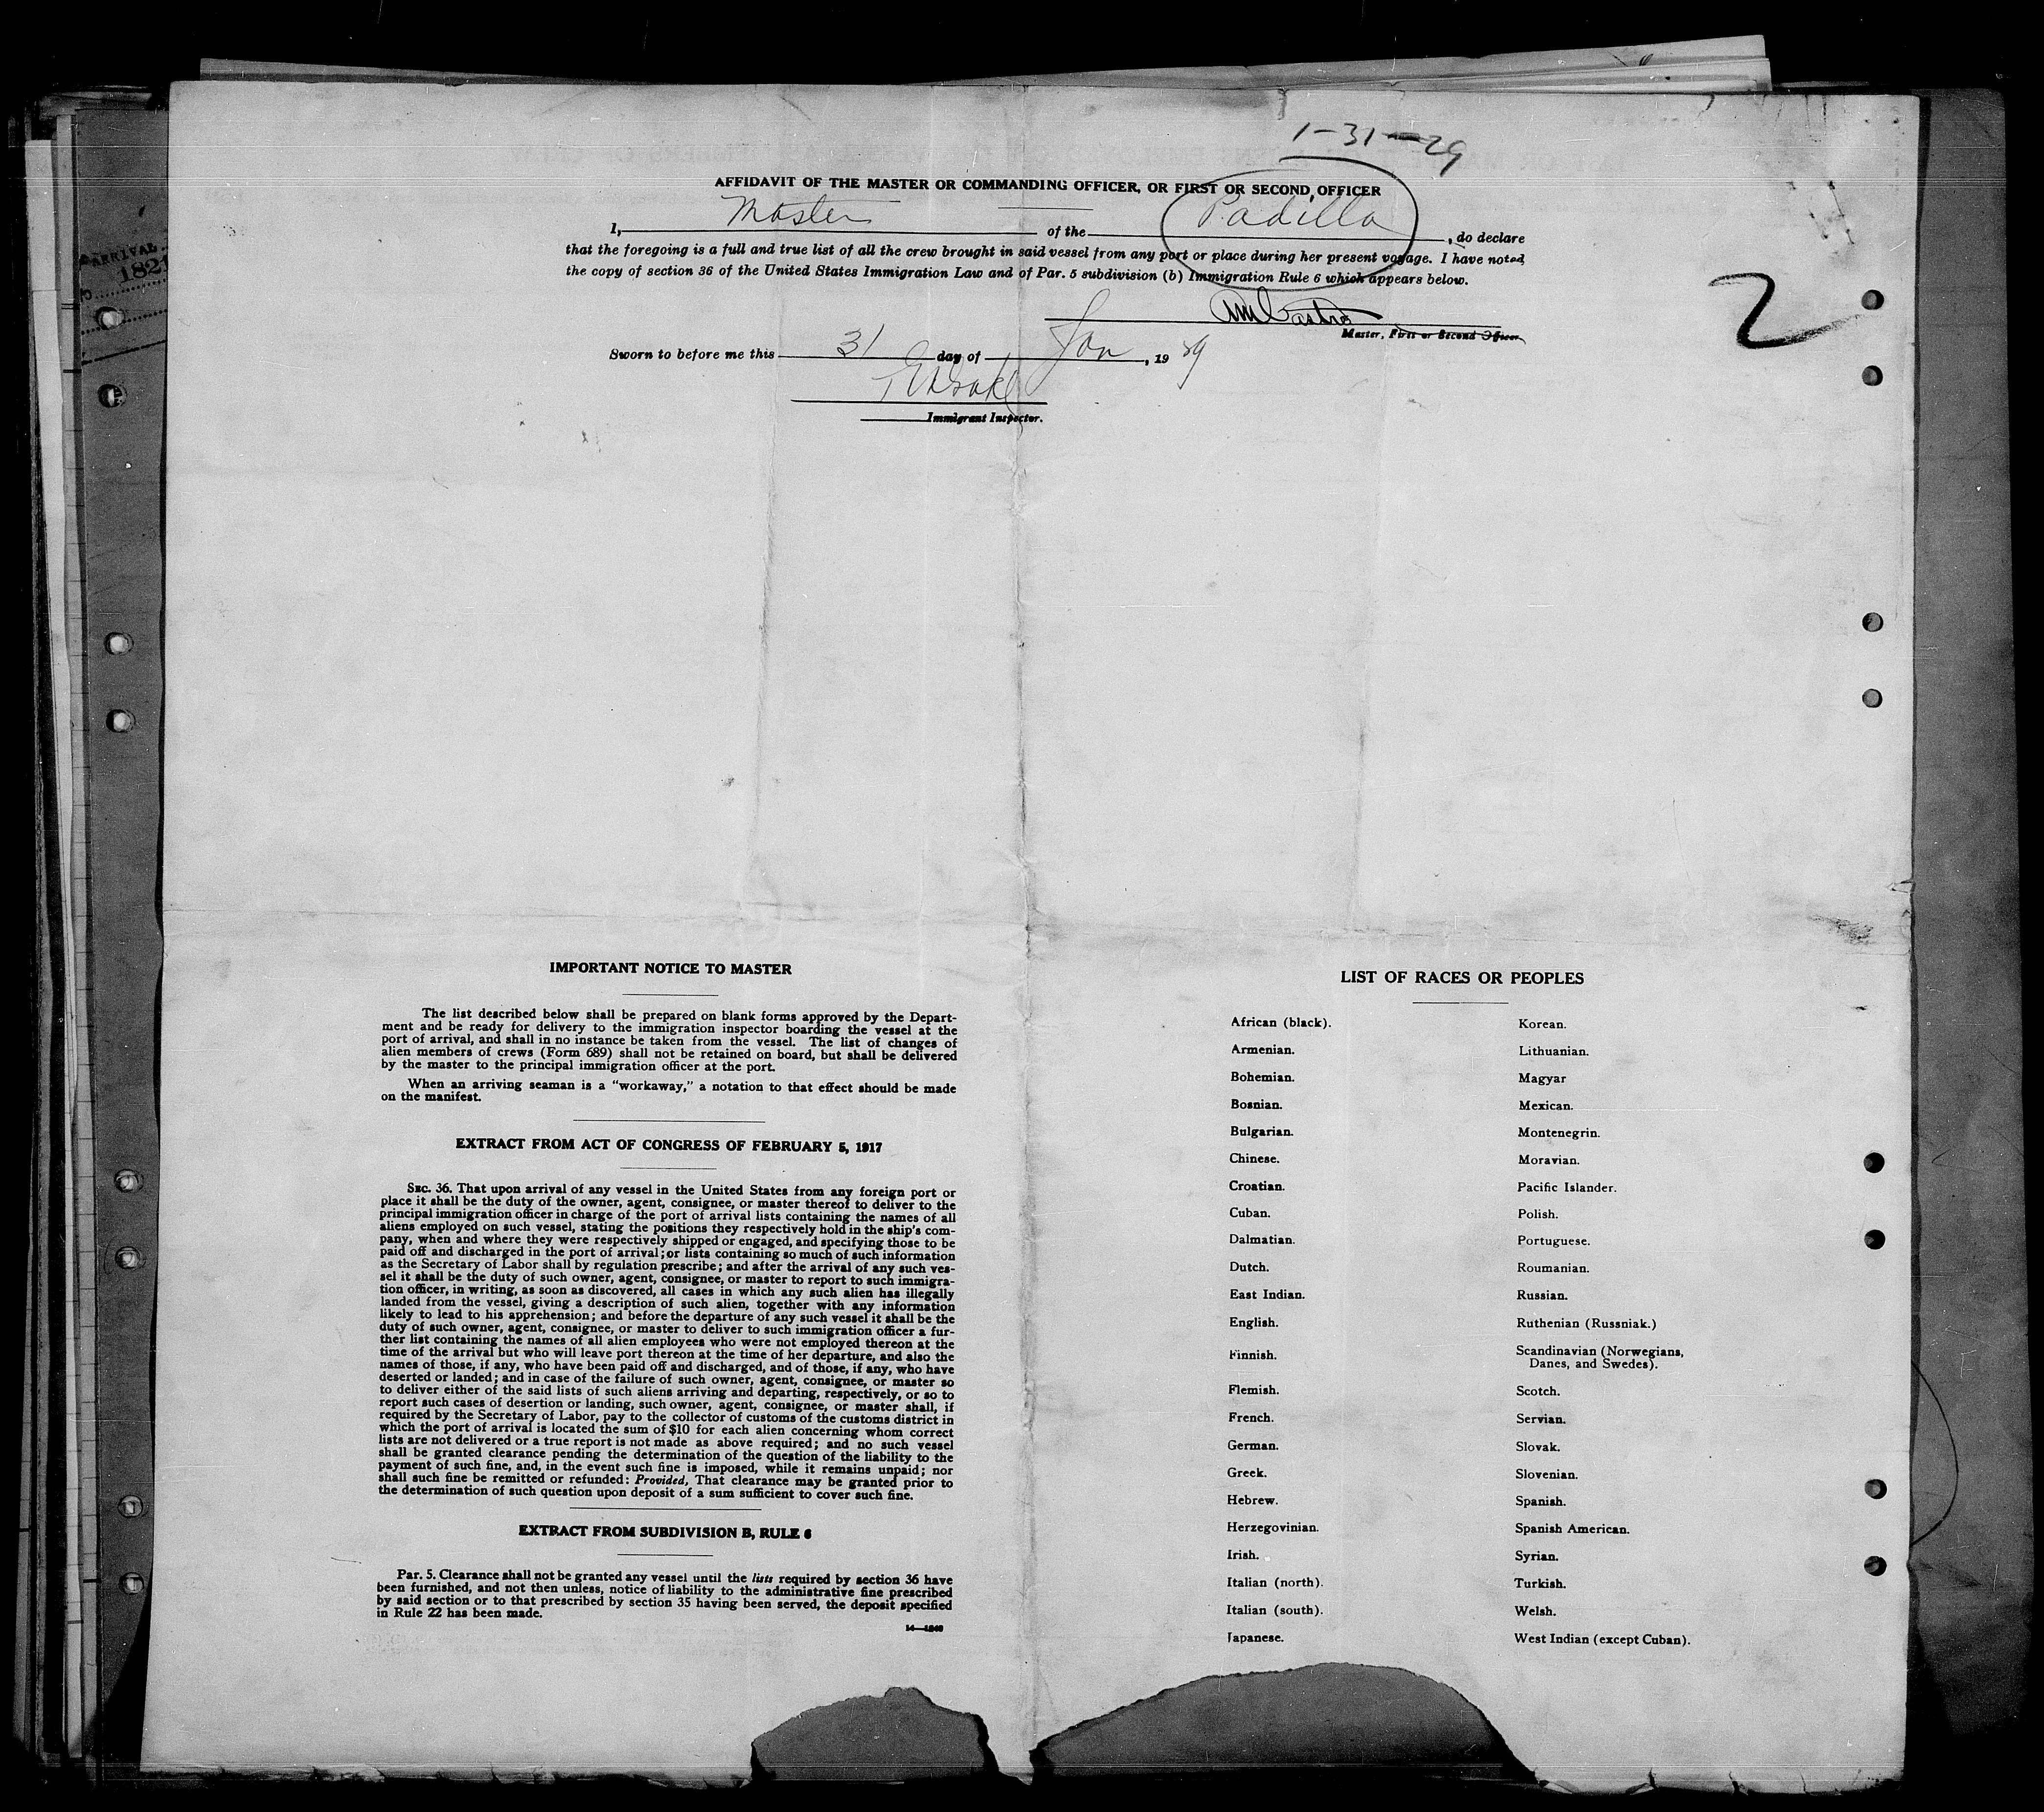 1-31-29
AFFIDAVIT OF THE MASTER OR COMMANDING OFFICER, OR FIRST OR SECOND OFFICER
I, Master of the Padilla, do declare
that the foregoing is a full and true list of all the crew brought in said vessel from any port or place during her present voyage. I have noted
the copy of section 36 of the United States Immigration Law and of Par. 5 subdivision (b) Immigration Rule 6 which appears below.
Castro
Master, First or Second Officer
2
Sworn to before me this 31 day of Jan, 19 29
Immigrant Inspector.
ARRIVAL
1821
IMPORTANT NOTICE TO MASTER
The list described below shall be prepared on blank forms approved by the Depart-
ment and be ready for delivery to the immigration inspector boarding the vessel at the
port of arrival, and shall in no instance be taken from the vessel. The list of changes of
alien members of crews (Form 689) shall not be retained on board, but shall be delivered
by the master to the principal immigration officer at the port.
When an arriving seaman is a "workaway," a notation to that effect should be made
on the manifest.
EXTRACT FROM ACT OF CONGRESS OF FEBRUARY 5, 1917
SEC. 36. That upon arrival of any vessel in the United States from any foreign port or
place it shall be the duty of the owner, agent, consignee, or master thereof to deliver to the
principal immigration officer in charge of the port of arrival lists containing the names of all
aliens employed on such vessel, stating the positions they respectively hold in the ship's com-
pany, when and where they were respectively shipped or engaged, and specifying those to be
paid off and discharged in the port of arrival; or lists containing so much of such information
as the Secretary of Labor shall by regulation prescribe; and after the arrival of any such ves-
sel it shall be the duty of such owner, agent, consignee, or master to report to such immigra-
tion officer, in writing, as soon as discovered, all cases in which any such alien has illegally
landed from the vessel, giving a description of such alien, together with any information
likely to lead to his apprehension; and before the departure of any such vessel it shall be the
duty of such owner, agent, consignee, or master to deliver to such immigration officer a fur-
ther list containing the names of all alien employees who were not employed thereon at the
time of the arrival but who will leave port thereon at the time of her departure, and also the
names of those, if any, who have been paid off and discharged, and of those, if any, who have
deserted or landed; and in case of the failure of such owner, agent, consignee, or master so
to deliver either of the said lists of such aliens arriving and departing, respectively, or so to
report such cases of desertion or landing, such owner, agent, consignee, or master shall, if
required by the Secretary of Labor, pay to the collector of customs of the customs district in
which the port of arrival is located the sum of $10 for each alien concerning whom correct
lists are not delivered or a true report is not made as above required; and no such vessel
shall be granted clearance pending the determination of the question of the liability to the
payment of such fine, and, in the event such fine is imposed, while it remains unpaid; nor
shall such fine be remitted or refunded: Provided, That clearance may be granted prior to
the determination of such question upon deposit of a sum sufficient to cover such fine.
EXTRACT FROM SUBDIVISION B, RULE 6
Par. 5. Clearance shall not be granted any vessel until the lists required by section 36 have
been furnished, and not then unless, notice of liability to the administrative fine prescribed
by said section or to that prescribed by section 35 having been served, the deposit specified
in Rule 22 has been made.
LIST OF RACES OR PEOPLES
African (black).
Armenian.
Bohemian.
Bosnian.
Bulgarian.
Chinese.
Croatian.
Cuban.
Dalmatian.
Dutch.
East Indian.
English.
Finnish.
Flemish.
French.
German.
Greek.
Hebrew.
Herzegovinian.
Irish.
Italian (north).
Italian (south).
Japanese.
Korean.
Lithuanian.
Magyar
Mexican.
Montenegrin.
Moravian.
Pacific Islander.
Polish.
Portuguese.
Roumanian.
Russian.
Ruthenian (Russniak.)
Scandinavian (Norwegians,
Danes, and Swedes).
Scotch.
Servian.
Slovak.
Slovenian.
Spanish.
Spanish American.
Syrian.
Turkish.
Welsh.
West Indian (except Cuban).